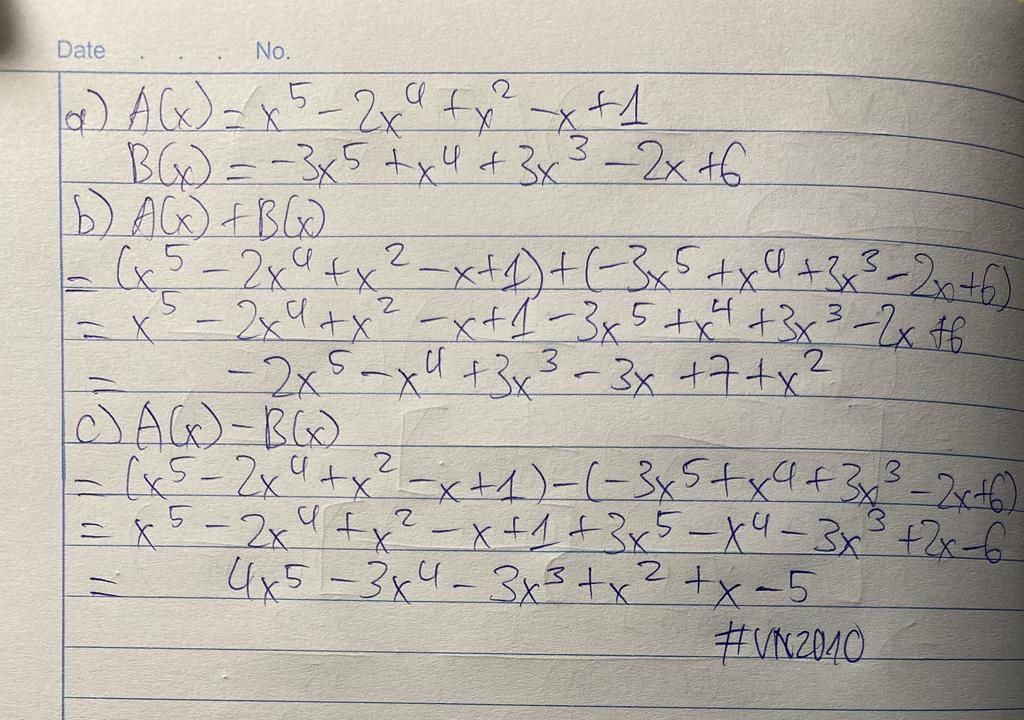 Date . . . No.
a) A(x) = x⁵ - 2x⁴ + x² - x + 1
B(x) = -3x⁵ + x⁴ + 3x³ - 2x + 6
b) A(x) + B(x)
= (x⁵ - 2x⁴ + x² - x + 1) + (-3x⁵ + x⁴ + 3x³ - 2x + 6)
= x⁵ - 2x⁴ + x² - x + 1 - 3x⁵ + x⁴ + 3x³ - 2x + 6
= -2x⁵ - x⁴ + 3x³ - 3x + 7 + x²
c) A(x) - B(x)
= (x⁵ - 2x⁴ + x² - x + 1) - (-3x⁵ + x⁴ + 3x³ - 2x + 6)
= x⁵ - 2x⁴ + x² - x + 1 + 3x⁵ - x⁴ - 3x³ + 2x - 6
= 4x⁵ - 3x⁴ - 3x³ + x² + x - 5
#VN2010